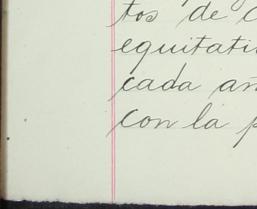 tos de c
equitati
cada añ
con la p